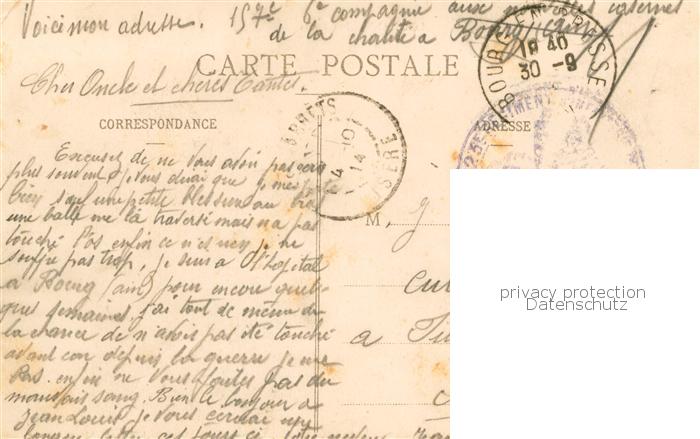 Voici mon adresse. 157e 6e compagnie aux nouvelles casernes
de la charité a Bourg (Ain)
CARTE POSTALE
Cher Oncle et cheres Tantes.
CORRESPONDANCE
ADRESSE
BOURG-EN-BRESSE
18 40
30 -9
ISERE
14
Excusez de ne Vous avoir pas ecris
plus souvent, je vous dirai que je
bien sauf une petite blessure au bras
une balle me la traversé mais na pas
touché l'os enfin ce n'est rien je ne
souffre pas trop, je suis a l'hopital
a Bourg (ain) pour encore quel-
ques semaines, j'ai tout de meme eu
la chance de n'avois pas été touché
avant car depuis la guerre je
Pas. enfin ne Vous faites pas du
mauvais sang. Bien le bonjour a
Jean Louis je vous
M. J
a
privacy protection
Datenschutz